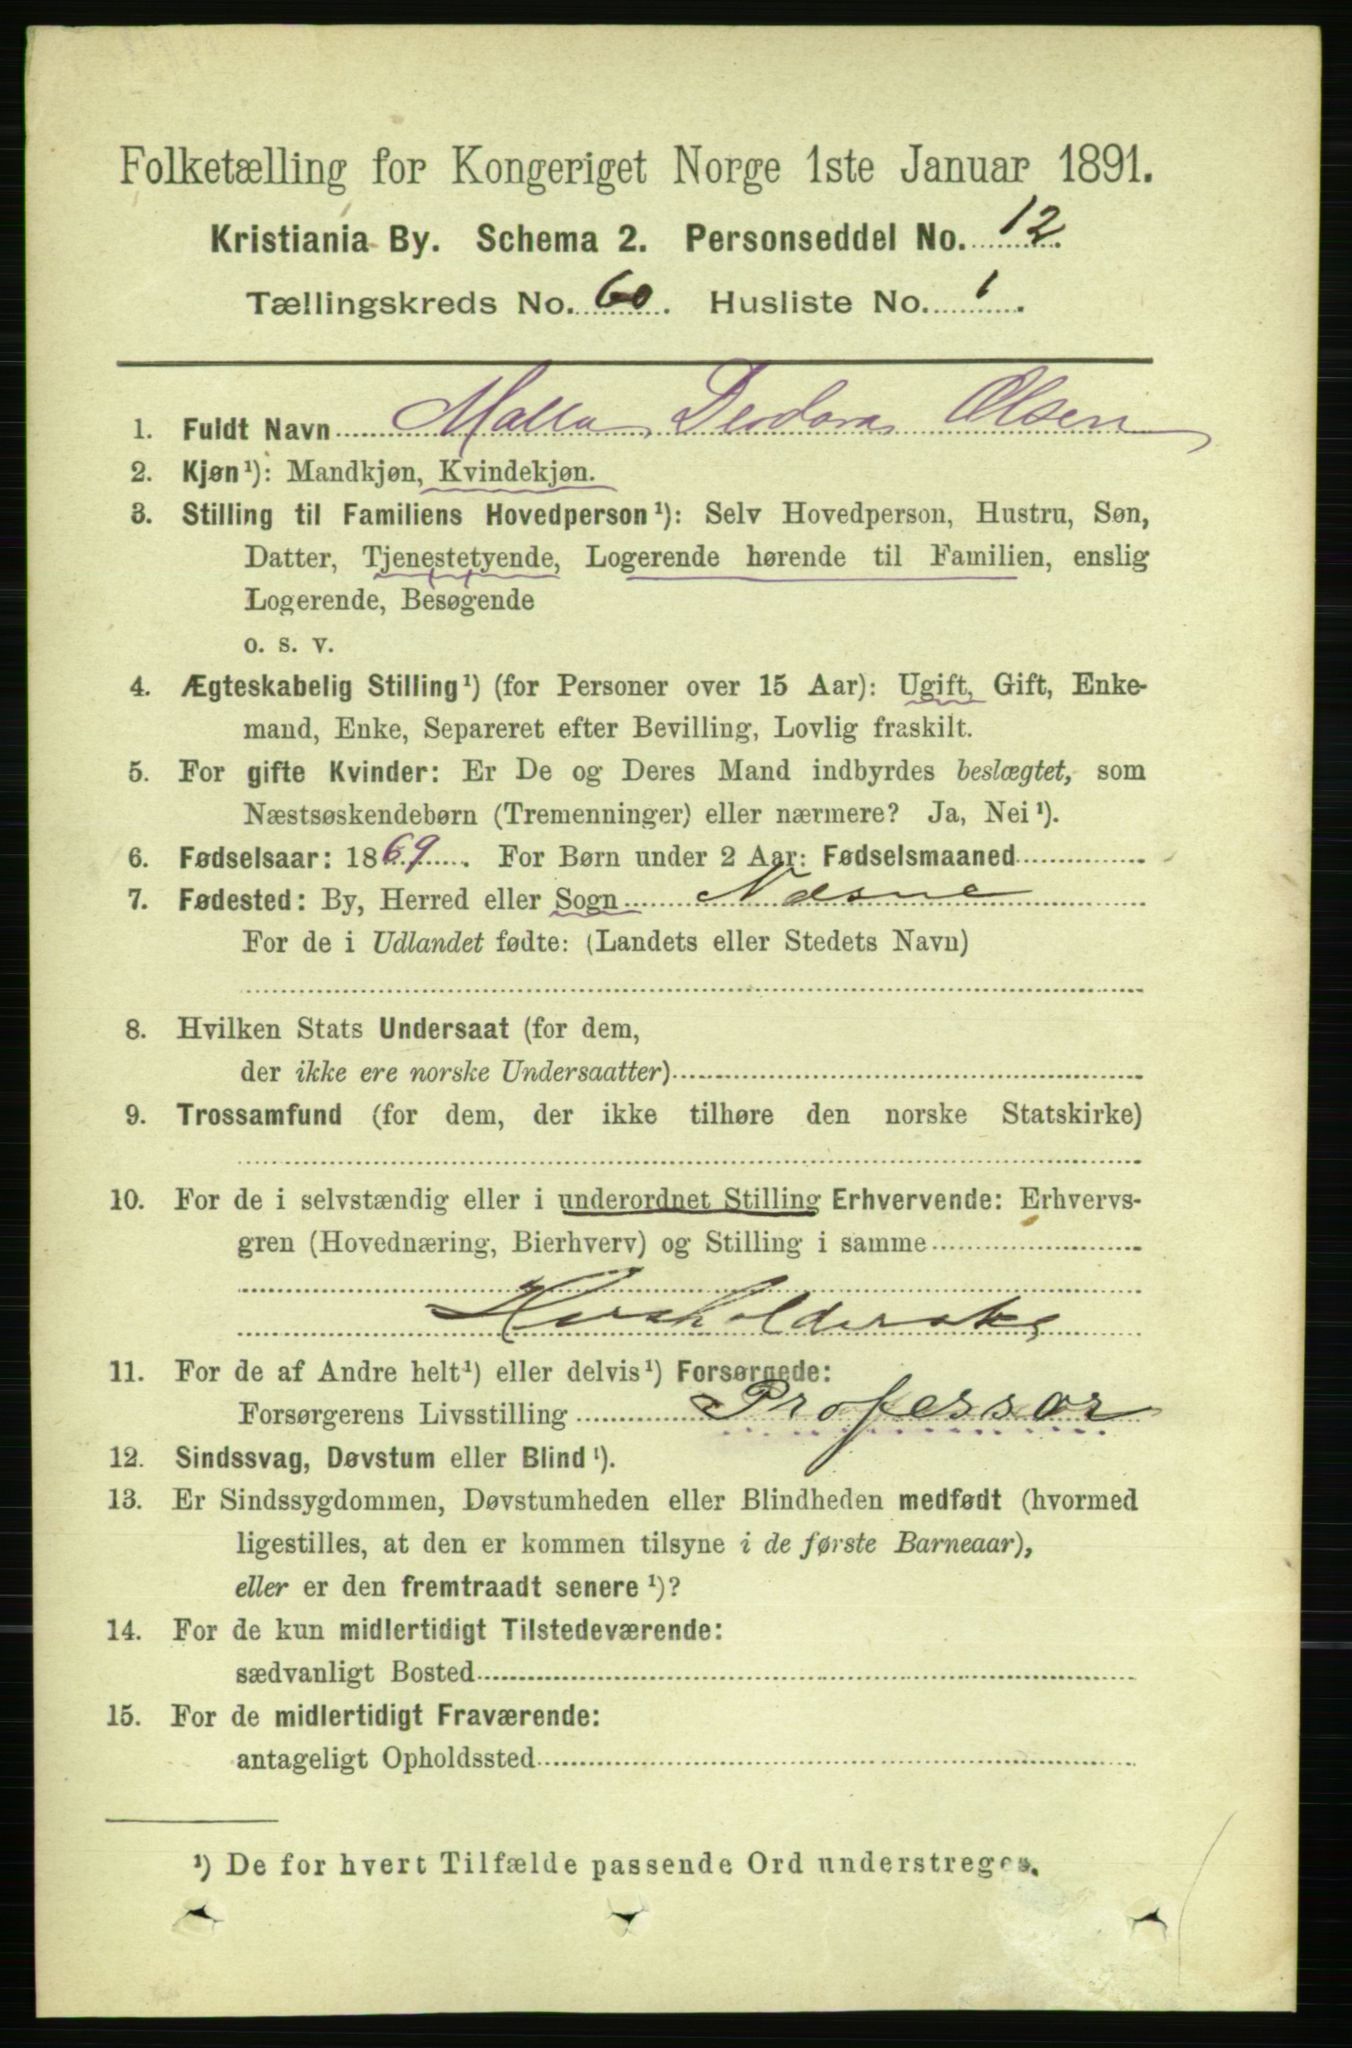 Folketælling for Kongeriget Norge 1ste Januar 1891.
Kristiania By. Schema 2. Personseddel No. 12.
Tællingskreds No. 60. Husliste No. 1.
1. Fuldt Navn Malla Deodora Olsen
2. Kjøn¹): Mandkjøn, Kvindekjøn.
3. Stilling til Familiens Hovedperson¹): Selv Hovedperson, Hustru, Søn,
Datter, Tjenestetyende, Logerende hørende til Familien, enslig
Logerende, Besøgende
o. s. v.
4. Ægteskabelig Stilling¹) (for Personer over 15 Aar): Ugift, Gift, Enke-
mand, Enke, Separeret efter Bevilling, Lovlig fraskilt.
5. For gifte Kvinder: Er De og Deres Mand indbyrdes beslægtet, som
Næstsøskendebørn (Tremenninger) eller nærmere? Ja, Nei¹).
6. Fødselsaar: 1869. For Børn under 2 Aar: Fødselsmaaned
7. Fødested: By, Herred eller Sogn Næsne
For de i Udlandet fødte: (Landets eller Stedets Navn)
8. Hvilken Stats Undersaat (for dem,
der ikke ere norske Undersaatter)
9. Trossamfund (for dem, der ikke tilhøre den norske Statskirke)
10. For de i selvstændig eller i underordnet Stilling Erhvervende: Erhvervs-
gren (Hovednæring, Bierhverv) og Stilling i samme
Husholderske
11. For de af Andre helt¹) eller delvis¹) Forsørgede:
Forsørgerens Livsstilling Professor
12. Sindssvag, Døvstum eller Blind¹).
13. Er Sindssygdommen, Døvstumheden eller Blindheden medfødt (hvormed
ligestilles, at den er kommen tilsyne i de første Barneaar),
eller er den fremtraadt senere¹)?
14. For de kun midlertidigt Tilstedeværende:
sædvanligt Bosted
15. For de midlertidigt Fraværende:
antageligt Opholdssted
¹) De for hvert Tilfælde passende Ord understreges.